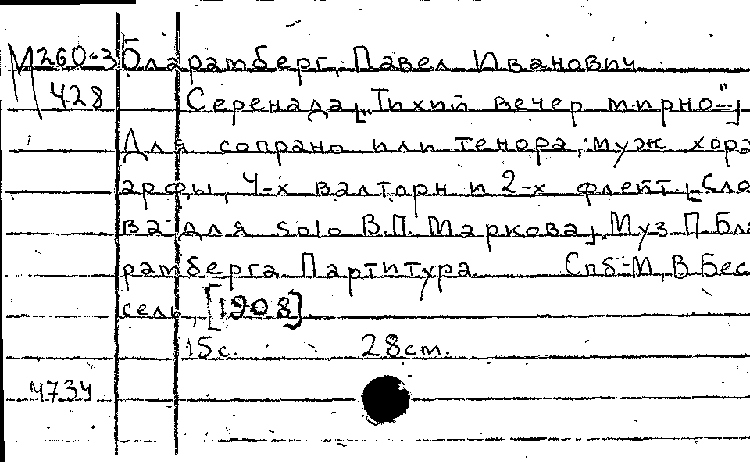 М 260-3 Бларамберг, Павел Иванович
428 Серенада [„Тихий вечер мирно"]
Для сопрано или тенора, муж хора
арфы, 4-х валторн и 2-х флейт. [Сло
ва для solo В.П. Маркова]. Муз. П. Бла
рамберга. Партитура. Спб-М, В. Бес
сель, [1908].
15 с. 28 cm.
4734